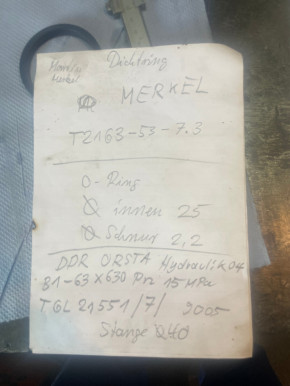 Dichtring
Merkel
MERKEL
T2163-53-7.3
O-Ring
Ø innen 25
Ø Schnur 2,2
DDR ORSTA Hydraulik 04
B1-63x630 Prz 15MPa
TGL 21551/7/ 9005
Stange Ø40